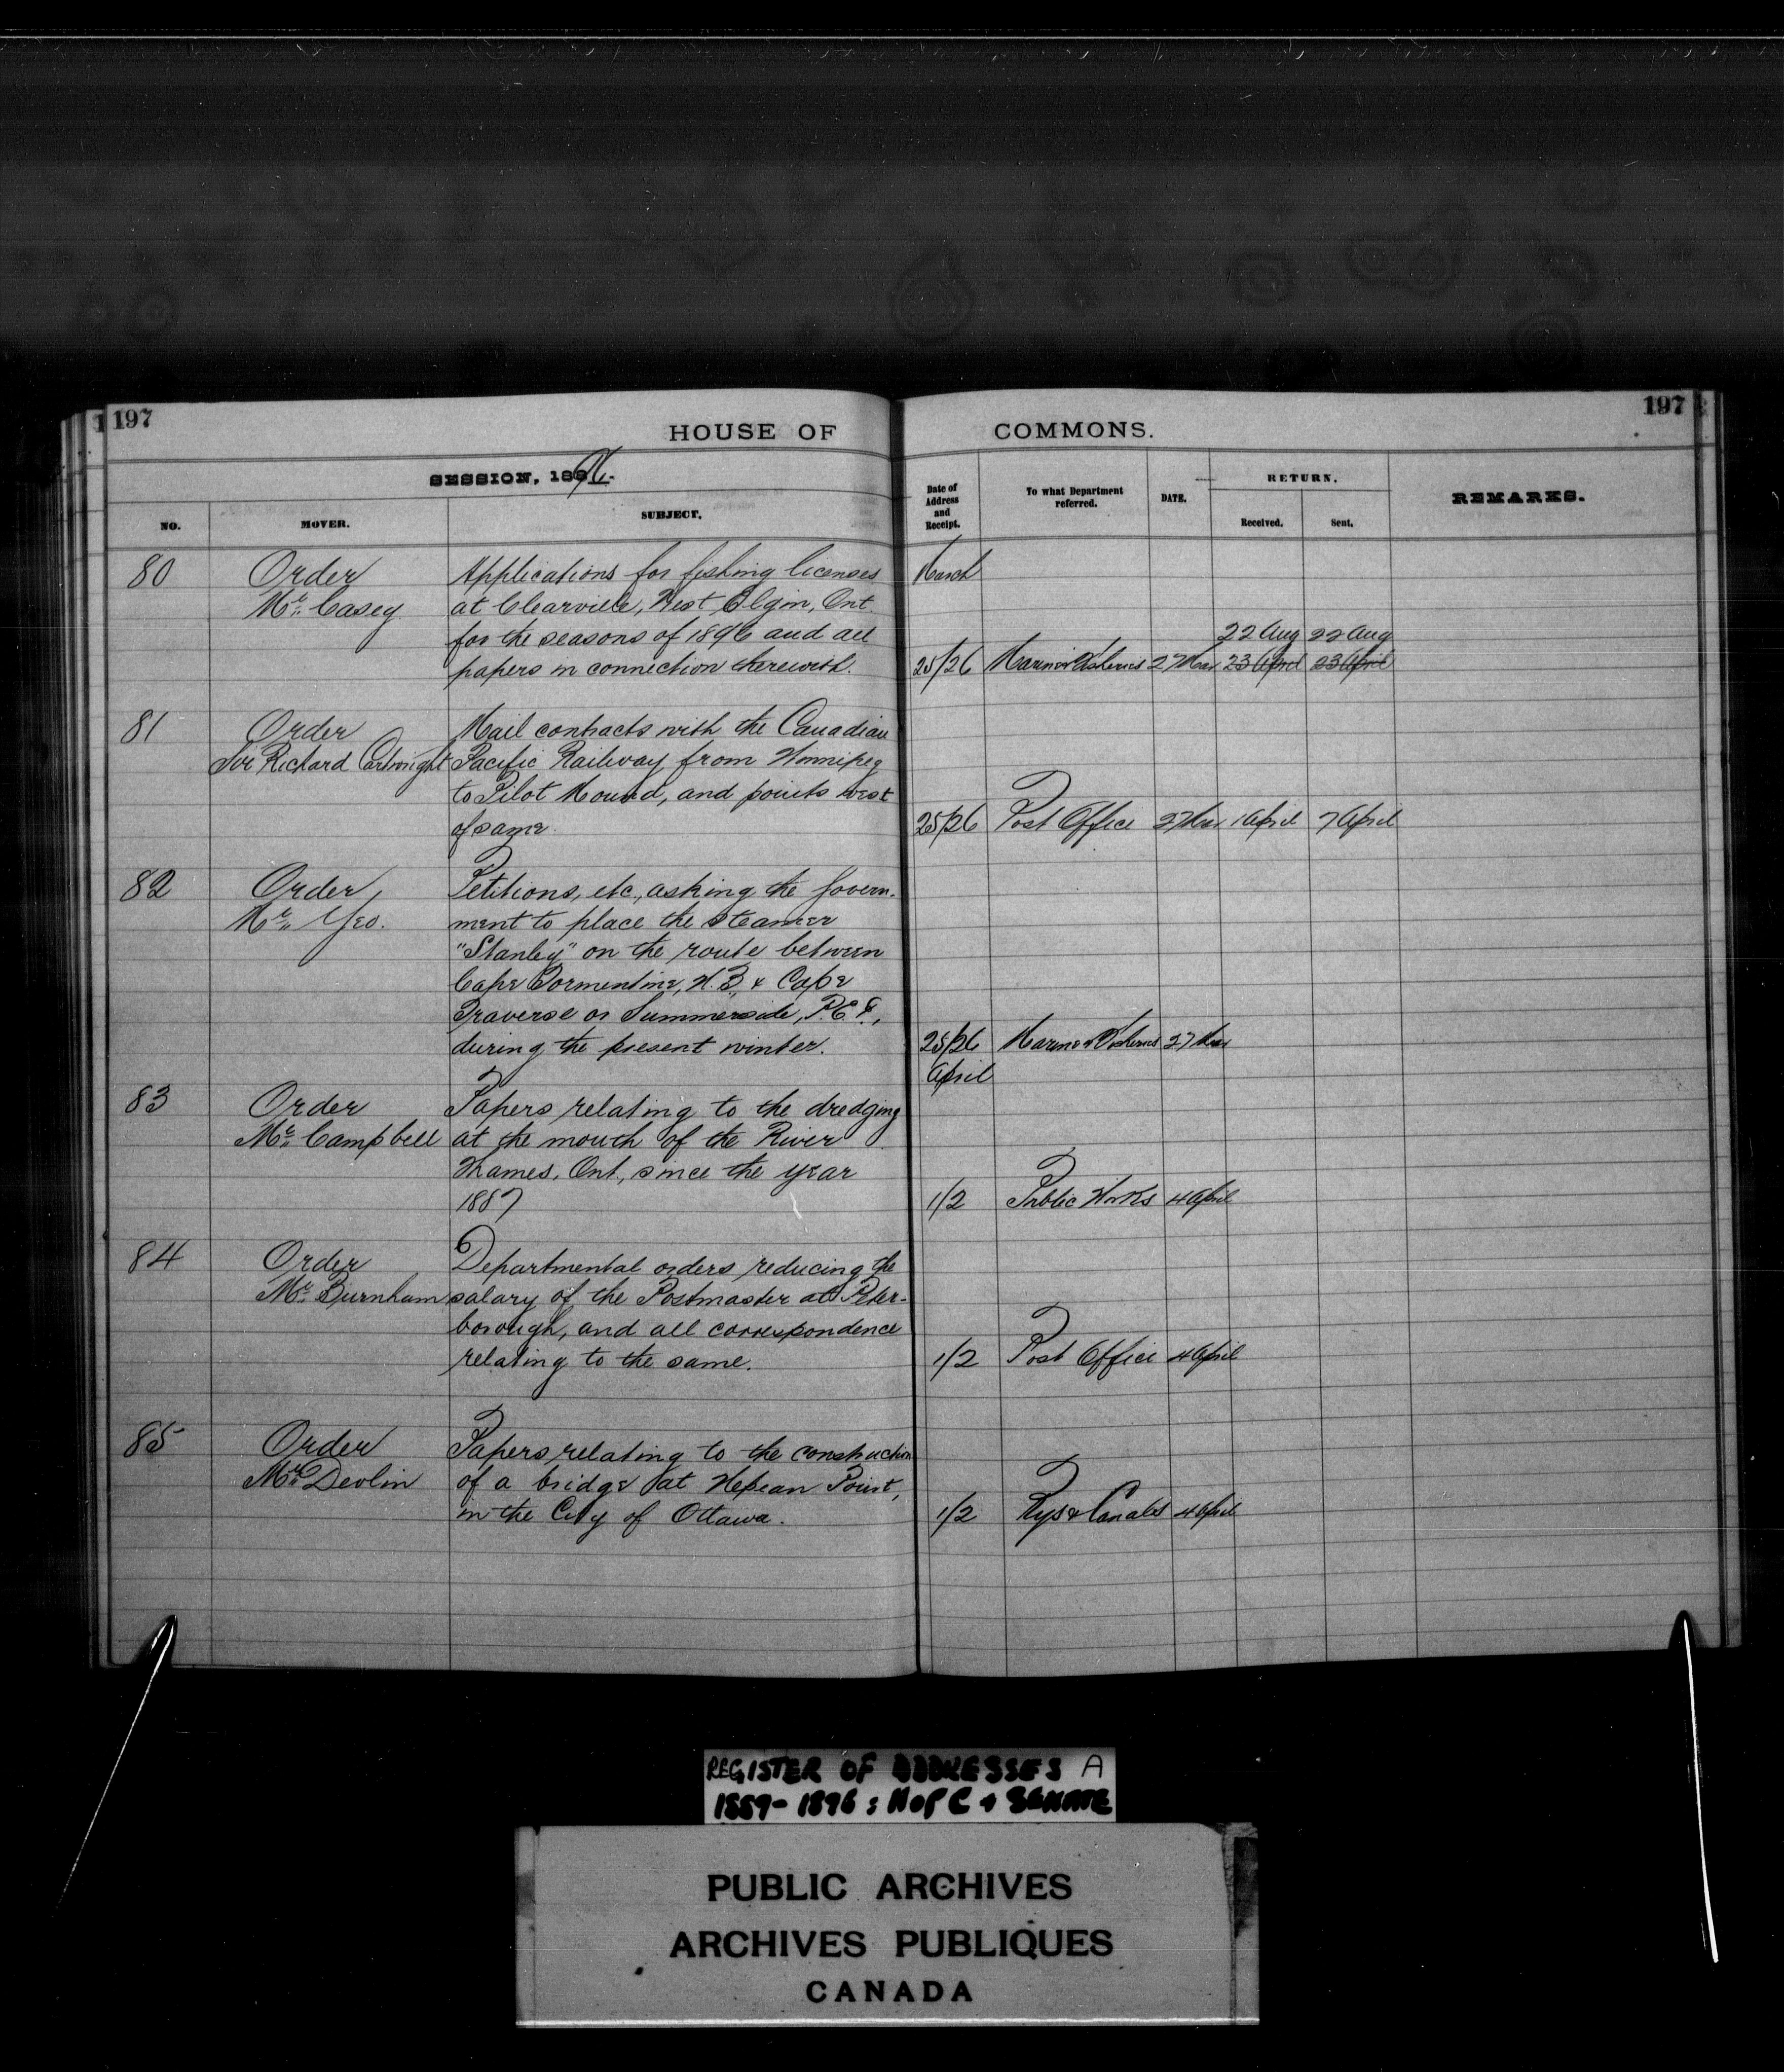 197
197
HOUSE OF COMMONS.
SESSION, 1896.
NO. MOVER. SUBJECT. Date of Address and Receipt. To what Department referred. DATE. RETURN. Received. Sent. REMARKS.
80 Order Applications for fishing licenses March
Mr. Casey at Clearville, West Elgin, Ont.
for the seasons of 1896 and all 22 Aug 22 Aug
papers in connection therewith. 25/26 Marine & Fisheries 27 Mar 23 April 23 April
81 Order Mail contracts with the Canadian
Sir Richard Cartwright Pacific Railway from Winnipeg
to Pilot Mound, and points west
of same. 25/26 Post Office 27 Mar 1 April 7 April
82 Order Petitions, etc., asking the Govern-
Mr. Yeo. ment to place the steamer
"Stanley" on the route between
Cape Tormentine, N.B., & Cape
Traverse or Summerside, P.E.I.,
during the present winter. 25/26 Marine & Fisheries 27 Mar
April
83 Order Papers relating to the dredging
Mr. Campbell at the mouth of the River
Thames, Ont., since the year
1887 1/2 Public Works 4 April
84 Order Departmental orders reducing the
Mr. Burnham salary of the Postmaster at Peter-
borough, and all correspondence
relating to the same. 1/2 Post Office 4 April
85 Order Papers relating to the construction
Mr. Devlin of a bridge at Nepean Point,
in the City of Ottawa. 1/2 Rys & Canals 4 April
REGISTER OF ADDRESSES A
1889-1896: H of C + SENATE
PUBLIC ARCHIVES
ARCHIVES PUBLIQUES
CANADA